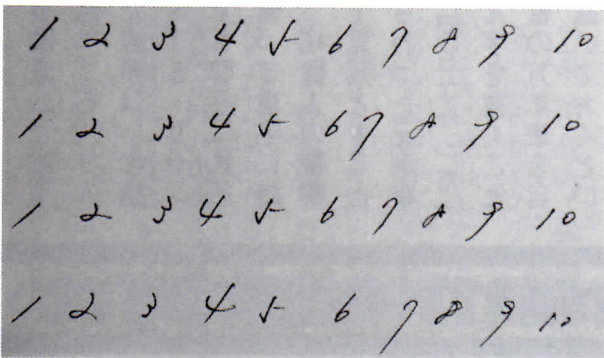 1 2 3 4 5 6 7 8 9 10
1 2 3 4 5 6 7 8 9 10
1 2 3 4 5 6 7 8 9 10
1 2 3 4 5 6 7 8 9 10